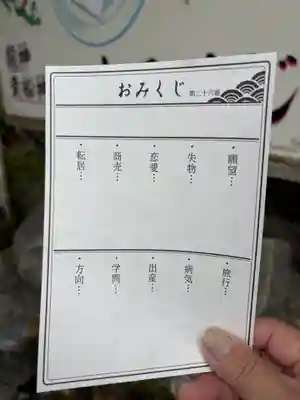 おみくじ 第二十六番
・願望…
・失物…
・恋愛…
・商売…
・転居…
・旅行…
・病気…
・出産…
・学問…
・方向…